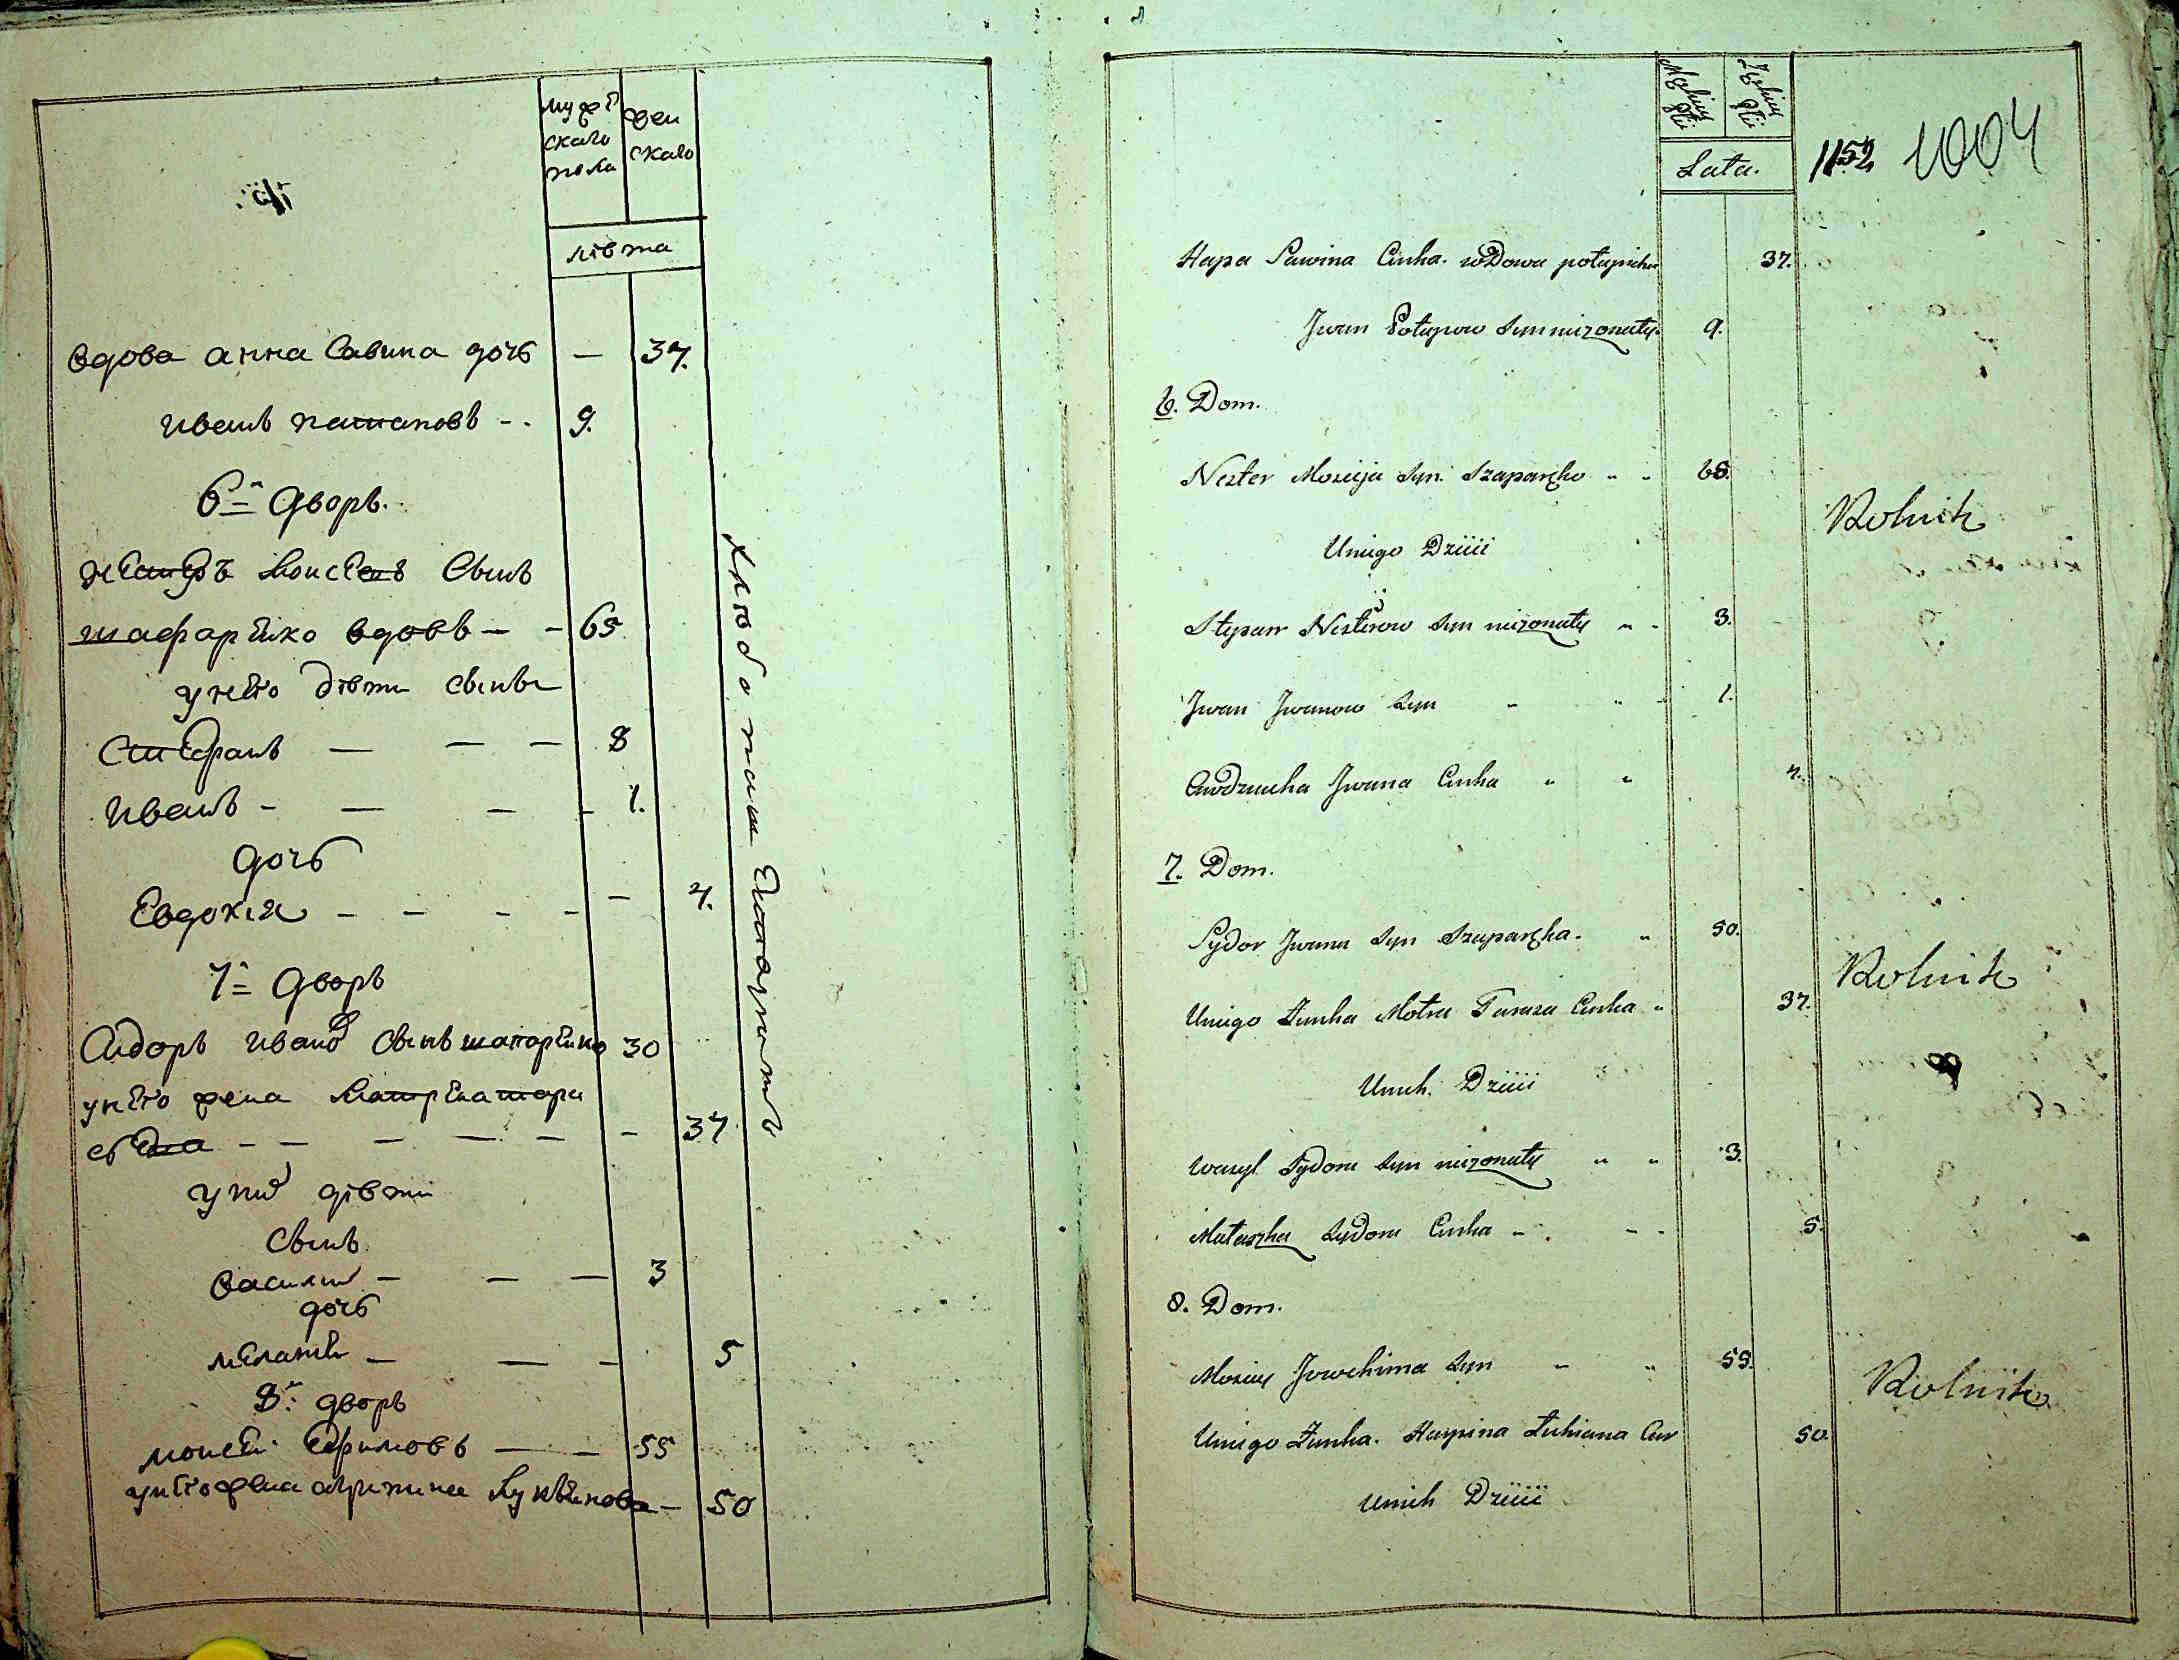 мужескаго пола
женскаго
лѣта
вдова анна Савина дочь — 37.
иванъ патаповъ - - 9.
6-й дворъ.
нестеръ Моисеевъ Сынъ
шафаренко вдовъ - - 65
унего дѣти сынъи
Стефанъ — — — 8
иванъ - — — - 1.
дочь
Евдокия - - - - — 4.
7-й дворъ
Сидоръ ивановъ Сынъ шапаренко 30
унего жена Матрена тара
сѣвна - — — — — - 37
униⷯ дѣти
Сынъ
василий - — — 3
дочь
меланья — — - 5
8-й дворъ
моисей Ефимовъ — — 55
унего жена агрипина Лукьянова — 50
хлебопашествуютъ
Męskiey Płci
Żeńskiey Płci
Lata.
1152 1004
Hapa Sawina Curka. wDowa potapicha 37.
Jwan Potapow Syn nieżonaty. 9.
6. Dom.
Nester Mosieja Syn. Szaparęko " " 65.
Rolnik
Uniego Dzieci
Stepan Nesterow Syn nieżonaty " " 3.
Jwan Jwanow Syn " " " 1.
Awdzucha Jwana Curka " " 4.
7. Dom.
Sydor Jwana Syn Szaparęka. " 30.
Rolnik
Uniego Żunka Motra Tarasa Curka " 37.
Unich. Dzieci
Wasyl Sydora Syn nieżonaty " " 3.
Mataszka Sydora Curka " . " " 5.
8. Dom.
Mosiey Jowchima Syn " " 55.
Rolnik
Uniego Żunka. Harpina Łukiana Cur 50.
unich Dzieci